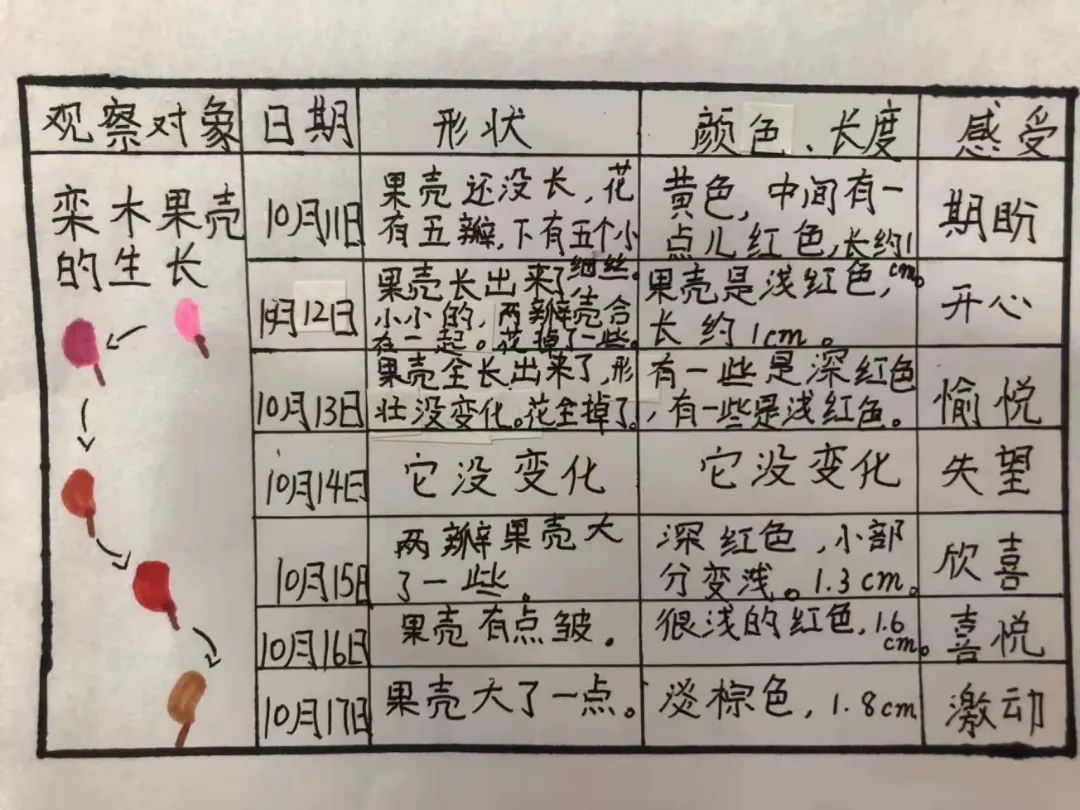 观察对象
日期
形状
颜色、长度
感受
栾木果壳
的生长
10月11日
果壳还没长，花
有五瓣，下有五个小
细丝。
黄色，中间有一
点儿红色，长约1
cm。
期盼
10月12日
果壳长出来了，
小小的，两瓣壳合
在一起。花掉了一些。
果壳是浅红色，
长约1cm。
开心
10月13日
果壳全长出来了，形
壮没变化。花全掉了。
有一些是深红色
，有一些是浅红色。
愉悦
10月14日
它没变化
它没变化
失望
10月15日
两瓣果壳大
了一些。
深红色，小部
分变浅。1.3cm。
欣喜
10月16日
果壳有点皱。
很浅的红色，1.6
cm。
喜悦
10月17日
果壳大了一点。
淡棕色，1.8cm
激动